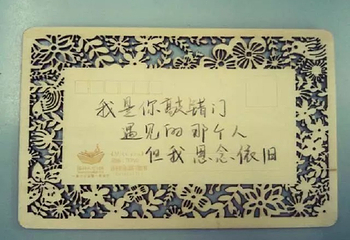 我是你敲错门
遇见的那个人
但我思念依旧